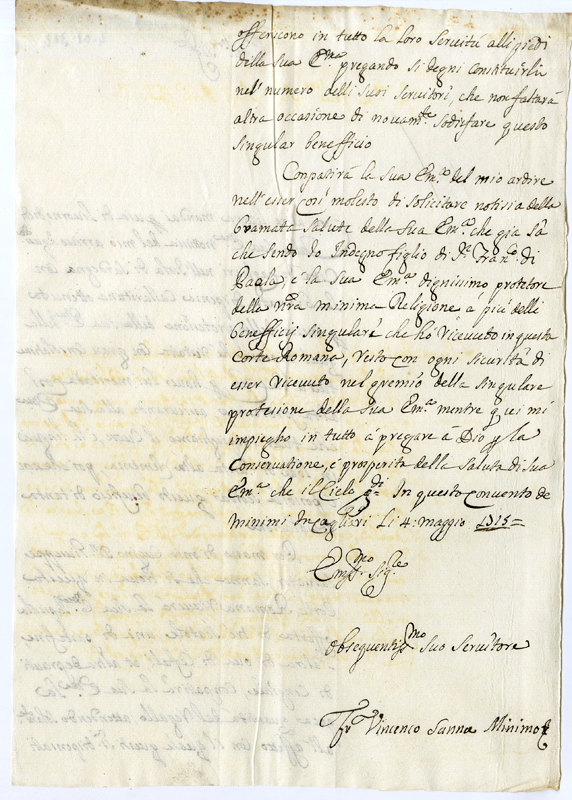 offeriscono in tutto la loro servitú alli piedi
della sua Em.ᵃ pregando si degni constituirli
nell numero delli suoi servitori, che non faltará
altra occasione di novam.ᵗᵉ sodisfare questo
singular benefficio
Conpatirá la sua Em.ᵃ del mio ardire
nell'esser cosí molesto di solicitare notisia della
bramata salute della sua Em.ᵃ che giá sá
che sendo Io Indegno figlio di S.ᵗᵒ Fran.ᶜᵒ di
Paola, é la sua Em.ᵃ dignisimo protetore
della nr̃a minima Religione, á piú delli
benefficij singulare che hó riceuuto in questa
Corte Romana, resto con ogni sicuritá di
esser riceuuto nel gremio della singulare
protesione della sua Em.ᵃ mentre qui mi
impiegho in tutto á pregare á Dio p la
Conservatione, é prosperitá della Saluta di sua
Em.ᵃ che il Cielo g.ᵈⁱ In questo convento de
minimi in Cagliari Li 4: maggio 1715=
Em.ᵐᵒ Sig.ʳᵉ
obsequentis.ᵐᵒ suo servitore
Fr Vincenco Sanna Minimo